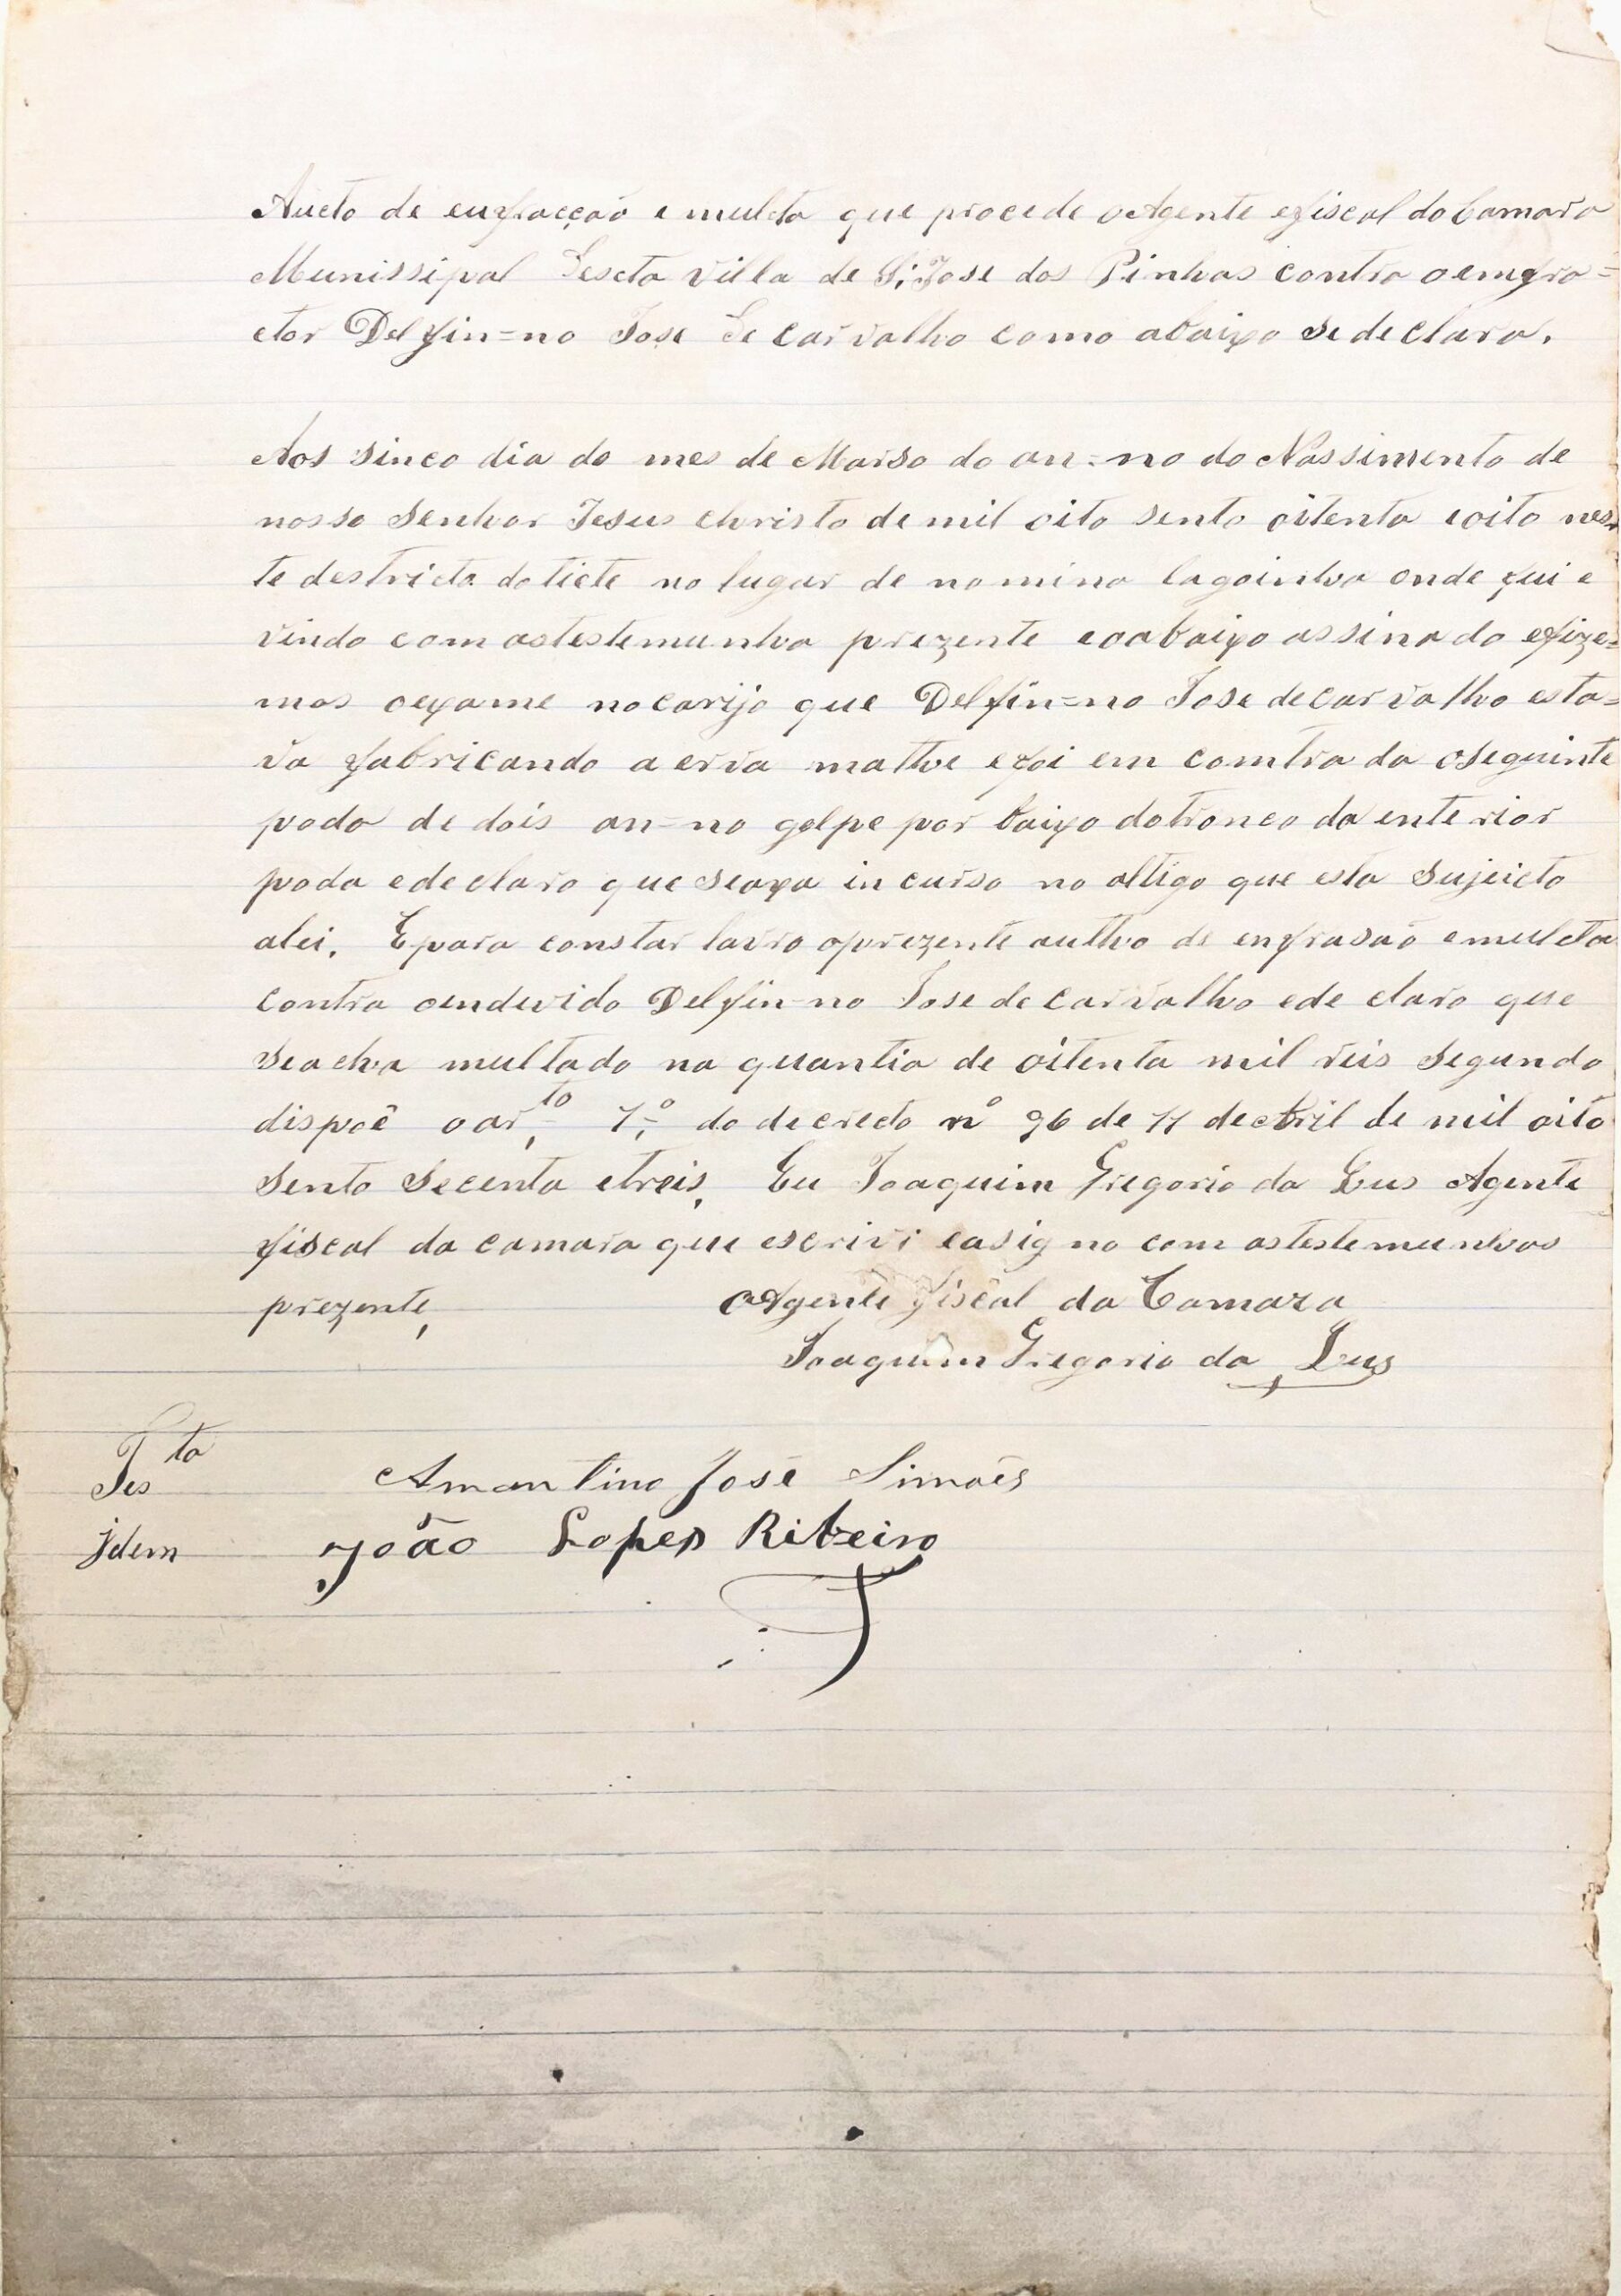 Aucto de enfracção e multa que procede o Agente efiscal da Camara
Munissipal Deseta Villa de S. Jose dos Pinhas contra o emfra=
ctor Delfin=no Jose de Carvalho como abaixo se declara.
Aos sinco dia do mes de Marso do an=no do Nassimento de
nosso Senhor Jesus Christo de mil oito sento oitenta ioito nes=
te destricto do tiete no lugar de nomina lagoinha onde fui e
vindo com astestemunha prezente eoabaixo assinado efize=
mos oexame no carijo que Delfin=no Jose de Carvalho esta=
va fabricando a erva mathe efoi em comtrada oseguinte
poda de dois an=no golpe por baixo dotronco da enterior
poda edeclaro que seaxa in curso no altigo que esta sujeicto
alei. Epara constar lavro oprezente autho de enfrasão emulcta
contra oendevido Delfin=no Jose de Carvalho ede claro que
seacha multado na quantia de oitenta mil reis segundo
dispoê o ar.to 1.º do decreto nº 96 de 11 de Abril de mil oito
sento secenta etreis. Eu Joaquim Gregorio da Lus Agente
fiscal da camara que escrivi easigno com astestemunhas
prezente, OAgente fiscal da Camara
Joaquim Gregorio da Lus
Testa Amantino José Simoês
Jdem João Lopes Ribeiro